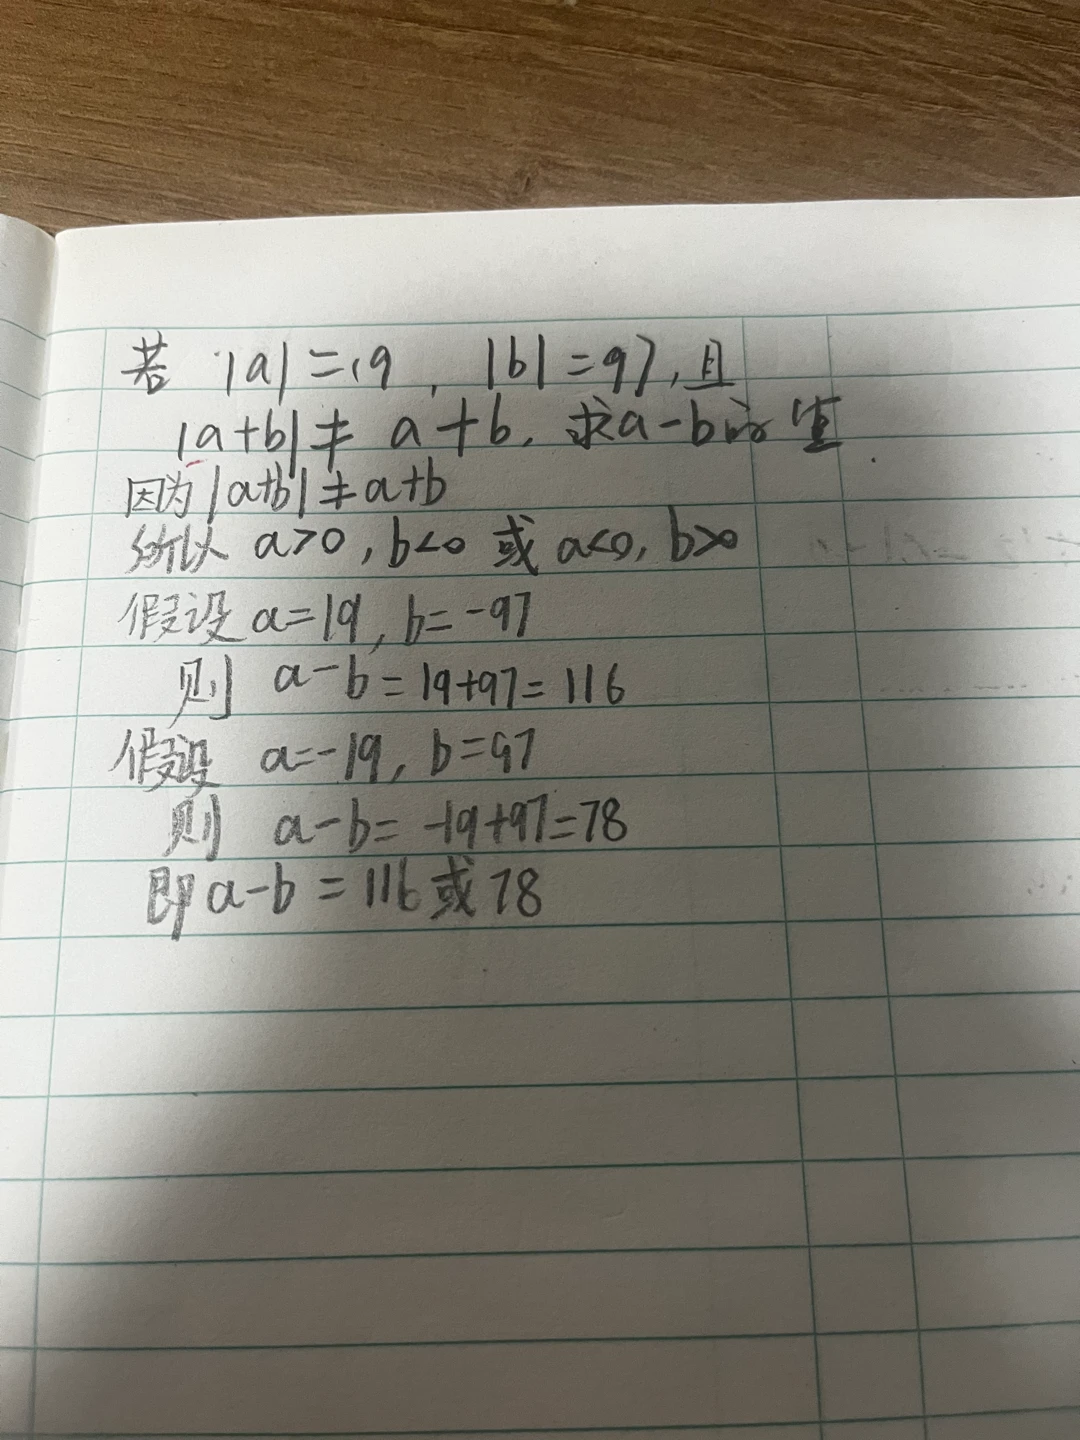 若 |a|=19, |b|=97,且
|a+b|≠a+b,求a-b的值.
因为|a+b|≠a+b
所以 a>0,b<0 或 a<0,b>0
假设a=19,b=-97
则 a-b=19+97=116
假设 a=-19,b=97
则 a-b=-19+97=78
即a-b=116或78